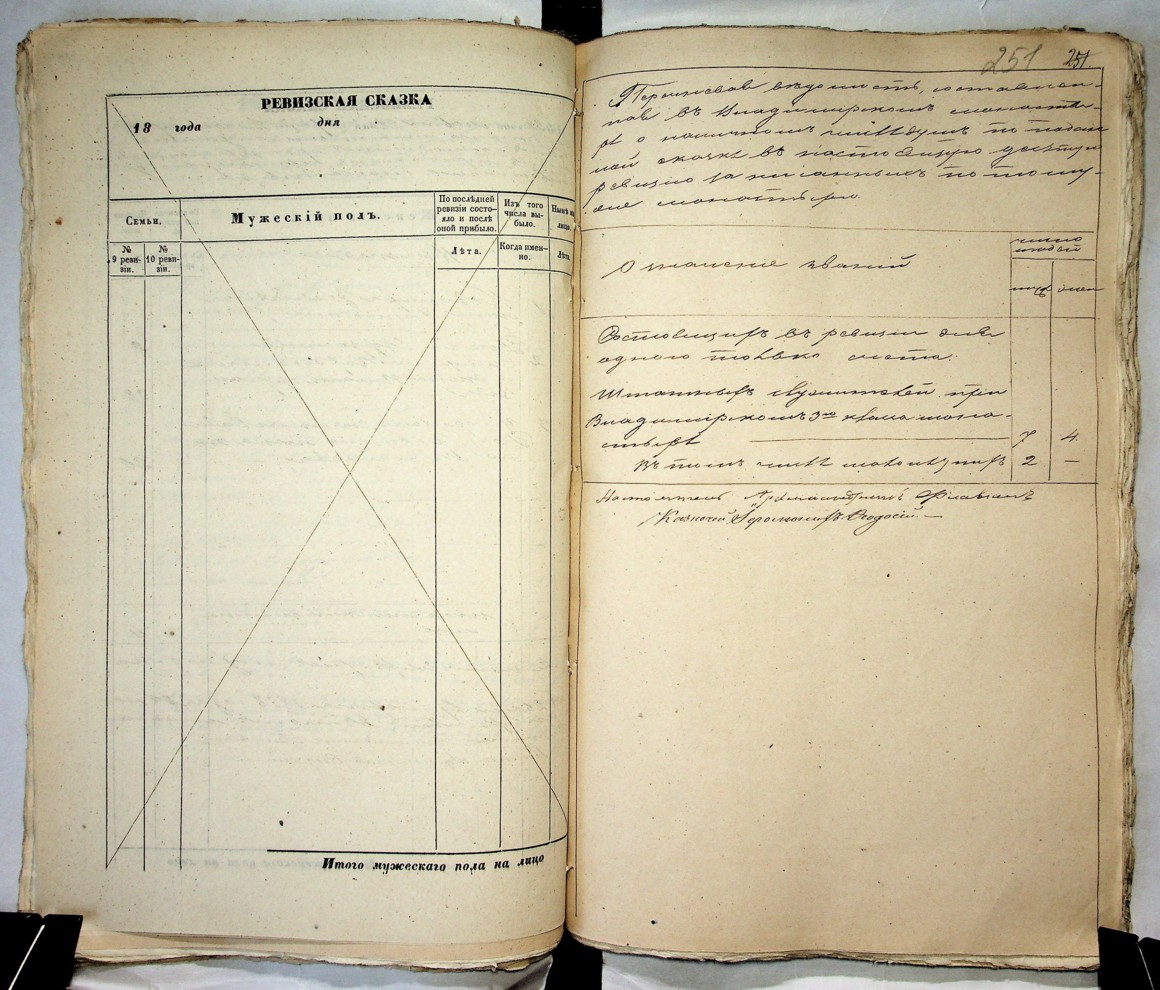 РЕВИЗСКАЯ СКАЗКА
18 года дня
Семьи.
Мужескій полъ.
По послѣдней ревизіи состояло и послѣ оной прибыло.
Изъ того числа выбыло.
Нынѣ на лицо.
№ 9 ревизіи.
№ 10 ревизіи.
Лѣта.
Когда именно.
Лѣта.
Итого мужескаго пола на лицо
251 251
Перечневая вѣдомость, составлен-
ная въ Владимірскомъ монасты-
рѣ о наличномъ числѣ душъ по подан-
ной сказкѣ въ настоящую десятую
ревизію записанныхъ по тому-
же монастырю.
Описаніе званій
число людей
муж жен
Состоящихъ въ ревизіи для
одного только счета.
Штатныхъ служителей при
Владимірскомъ 3го класса мона-
стырѣ 7 4
Въ томъ числѣ 2 —
Настоятель Архимандритъ
Казначей Іеромонахъ Ѳеодосій. —